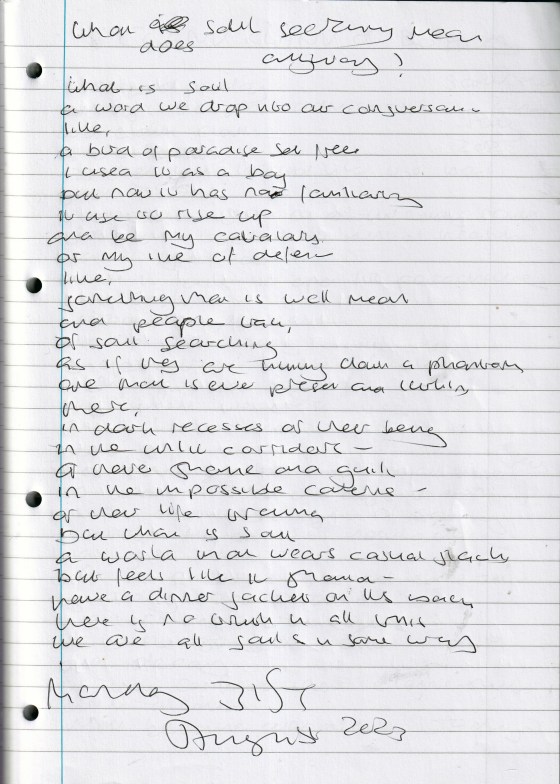 What does soul seeking mean
anyway?
what is soul
a word we drop into our conversation
like,
a bird of paradise set free
I used it as a boy
but now it has no familiarity
it use to rise up
and be my
or my line of defence
like,
something that is well meant
and people talk,
of soul searching
as if they are hunting down a phantom
one that is ever present and lurking
there,
in dark recesses of their being
in the unlit corridors –
of shame and guilt
in the impossible –
of their life
but what is soul
a world that wears casual slacks
but feels like it should –
have a dinner jacket on its back
there is no truth in all this
we are all souls in some way
Monday 31st
August 2023